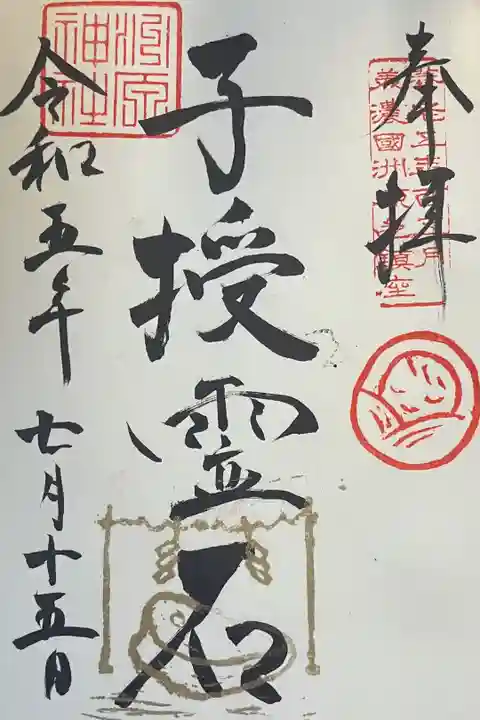 奉拝
美濃國洲原鎮座
子授霊石
洲原神社
令和五年 七月十五日